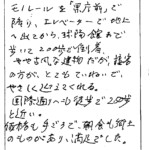 モノレールを「県庁前」で
降り、エレベーターで地上
へ出てから、
歩いて200歩で到着。
やや古風な建物だが、接客
の方が、とてもていねいで、
やさしく迎えてくれる。
国際通りへも徒歩で2
近い。
価格も手ごろで、朝食も郷土
のものがあり、満足でした。